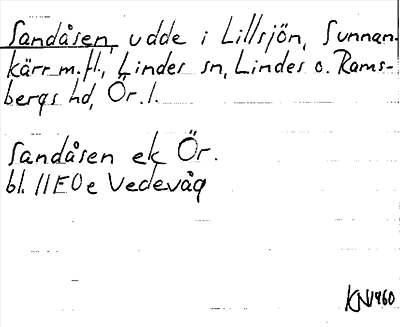 Sandåsen, udde i Lillsjön, Sunnan-
kärr m.fl., Lindes sn, Lindes o. Rams-
bergs hd, Ör. l.
Sandåsen ek Ör.
bl. 11F0e Vedevåg
KN1960